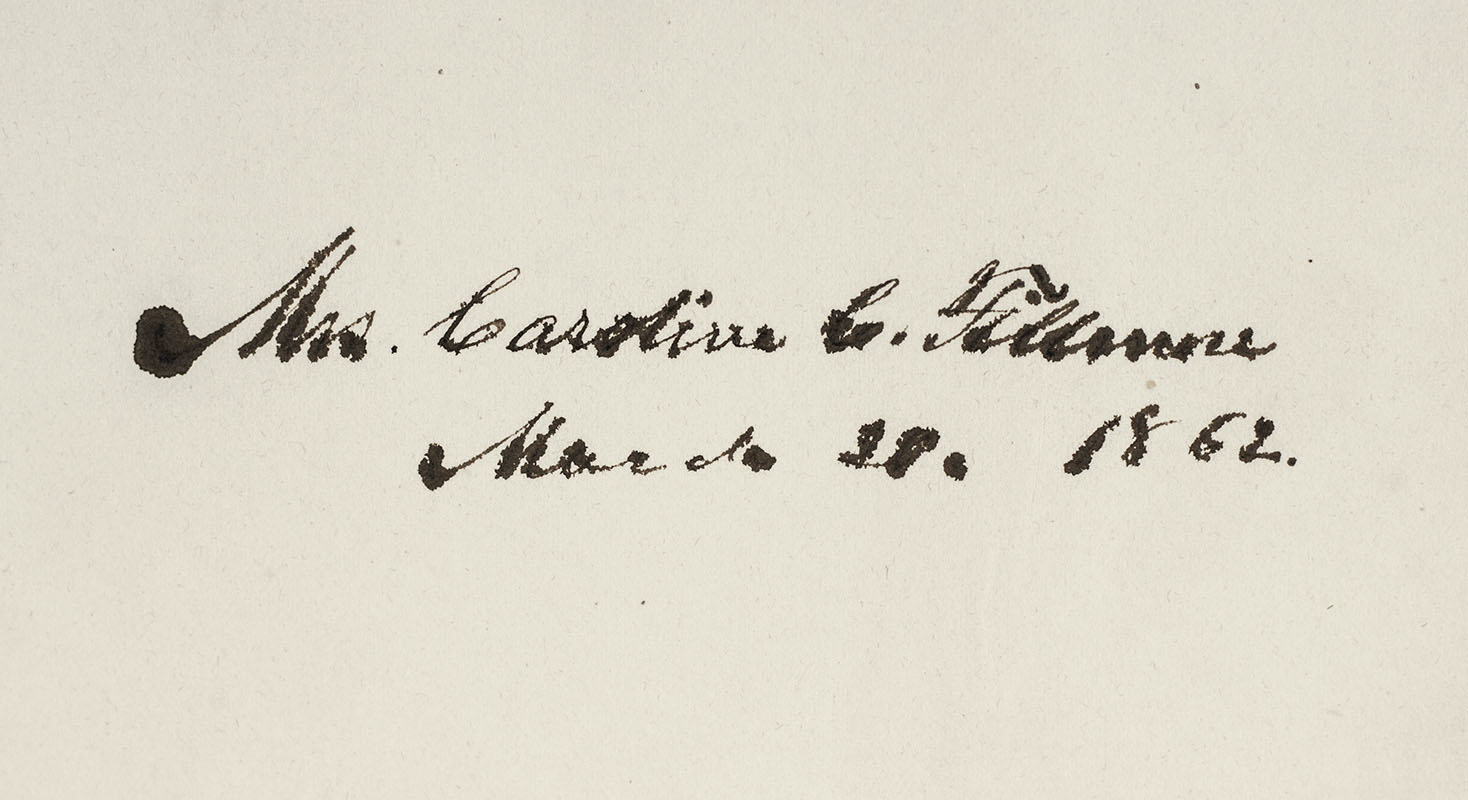 Mrs. Caroline C. Fillmore
March 28. 1862.